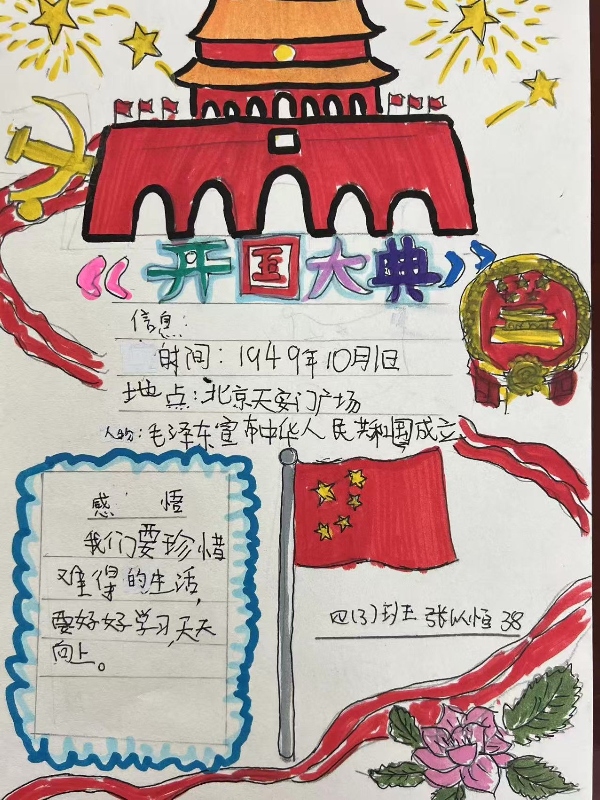 《开国大典》
信息:
时间:1949年10月1日
地点:北京天安门广场
人物:毛泽东宣布中华人民共和国成立
感悟
我们要珍惜
难得的生活,
要好好学习,天天
向上。
四(3)班 张以恒 38